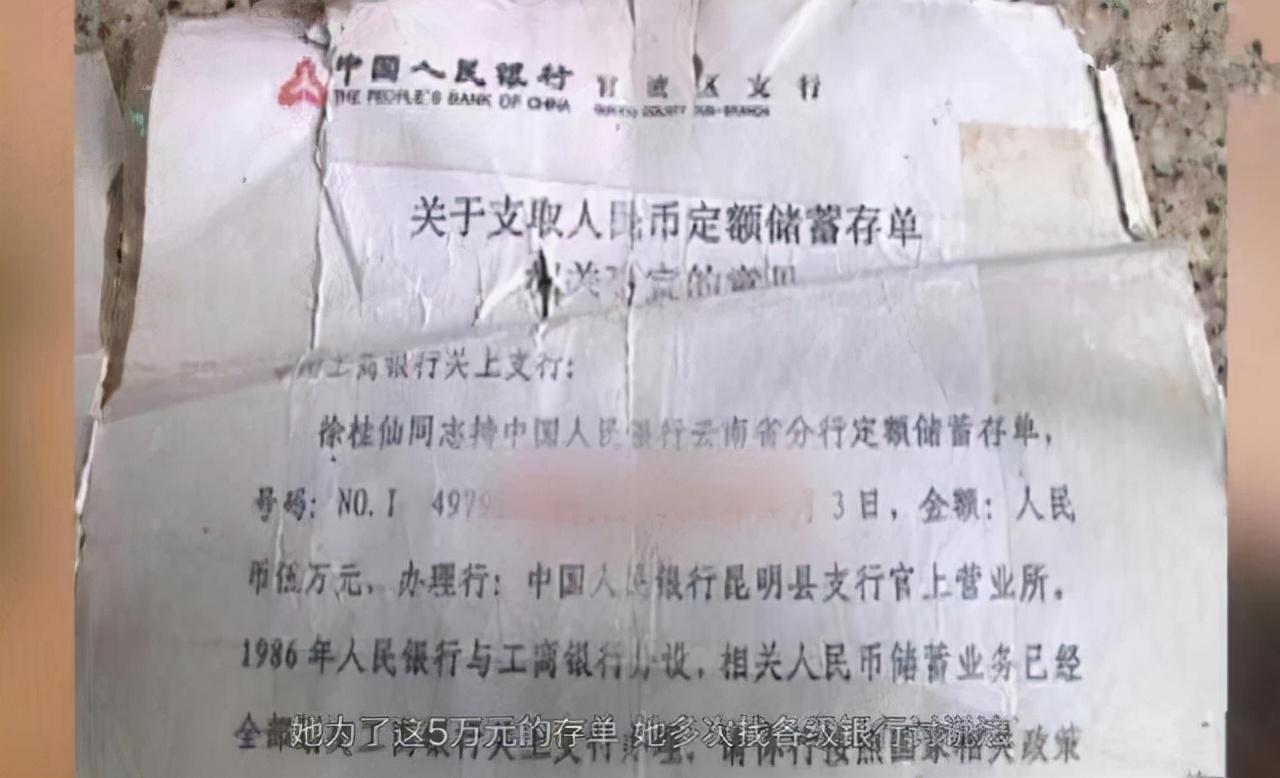 中国人民银行 官渡区支行
THE PEOPLE'S BANK OF CHINA
关于支取人民币定额储蓄存单
相关 的意见
工商银行关上支行:
徐桂仙同志持中国人民银行云南省分行定额储蓄存单,
号码: NO.I 4979 3日, 金额: 人民
币伍万元, 办理行: 中国人民银行昆明县支行官上营业所。
1986年人民银行与工商银行分设, 相关人民币储蓄业务已经
全部
她为了这5万元的存单 她多次找各级银行讨说法